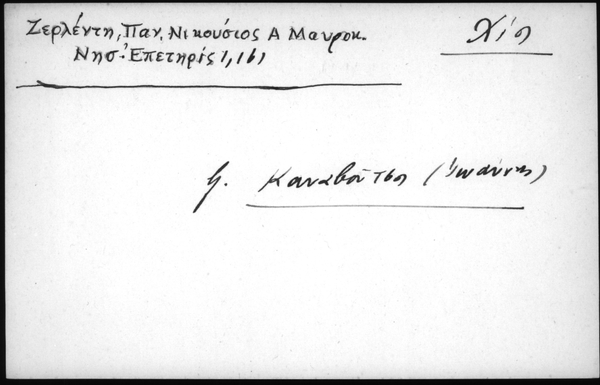 Ζερλέντη, Παν. Νικούσιος Α Μαυροκ.
Νησ. Ἐπετηρίς 1, 161
Χίος
Καναβοῦτσος (Ἰωάννης)